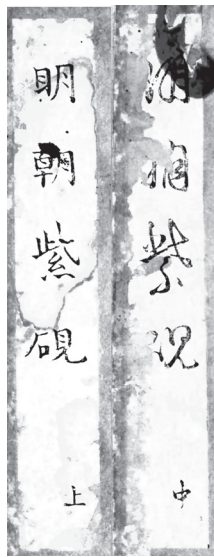 明朝紫硯 上
明朝紫硯 中